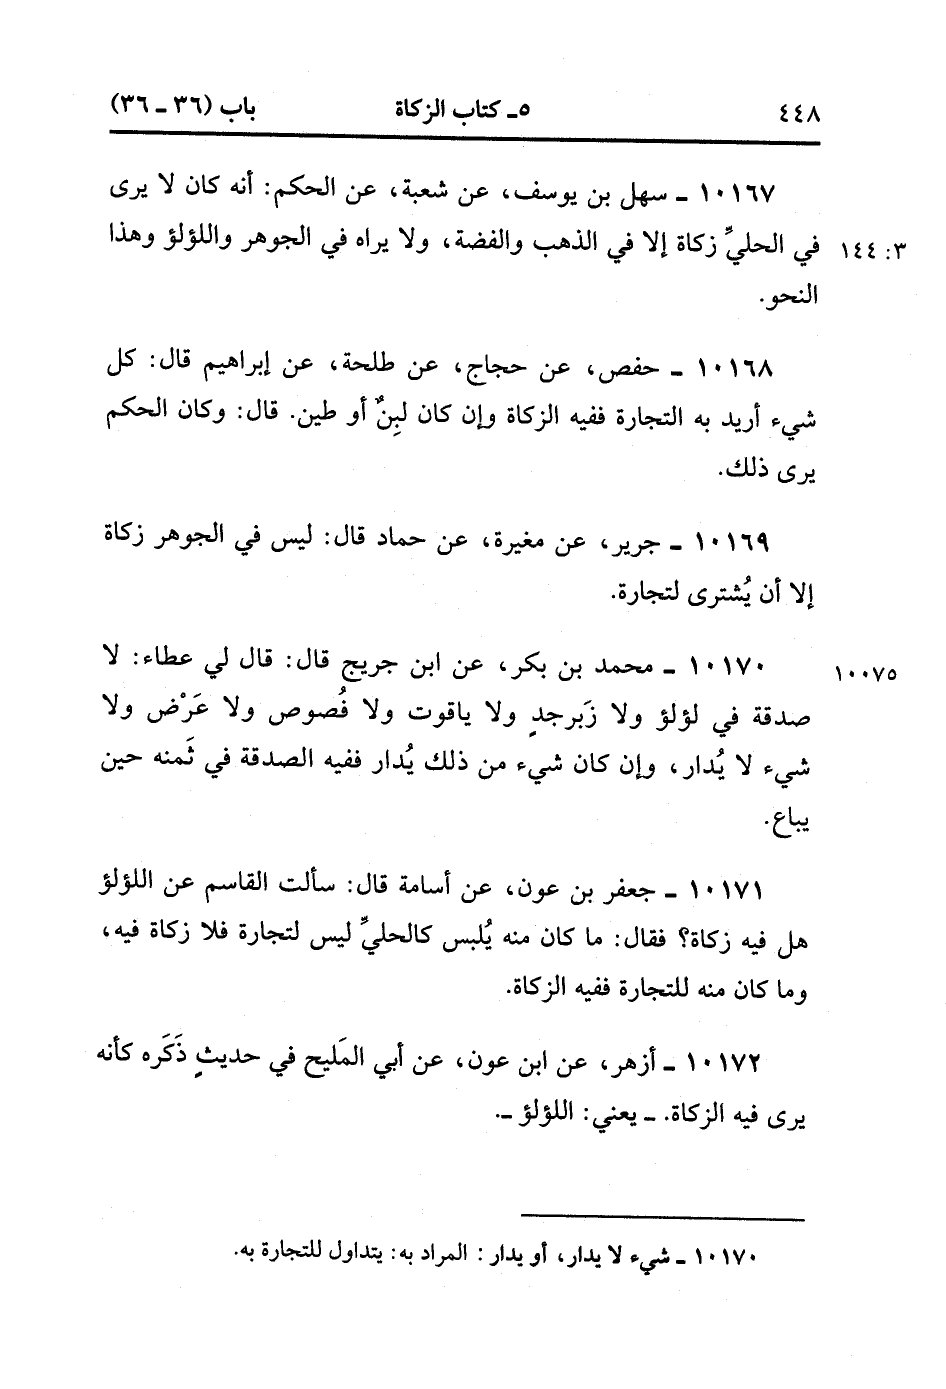 ٤٤٨ ٥ـ كتاب الزكاة باب (٣٦ ـ ٣٦)
١٠١٦٧ ـ سهل بن يوسف، عن شعبة، عن الحكم: أنه كان لا يرى
٣: ١٤٤ في الحليِّ زكاة إلا في الذهب والفضة، ولا يراه في الجوهر واللؤلؤ وهذا
النحو.
١٠١٦٨ ـ حفص، عن حجاج، عن طلحة، عن إبراهيم قال: كل
شيء أريد به التجارة ففيه الزكاة وإن كان لبِنٌ أو طين. قال: وكان الحكم
يرى ذلك.
١٠١٦٩ ـ جرير، عن مغيرة، عن حماد قال: ليس في الجوهر زكاة
إلا أن يُشترى لتجارة.
١٠٠٧٥ ١٠١٧٠ ـ محمد بن بكر، عن ابن جريج قال: قال لي عطاء: لا
صدقة في لؤلؤ ولا زَبرجدٍ ولا ياقوت ولا فُصوص ولا عَرْض ولا
شيء لا يُدار، وإن كان شيء من ذلك يُدار ففيه الصدقة في ثَمنه حين
يباع.
١٠١٧١ ـ جعفر بن عون، عن أسامة قال: سألت القاسم عن اللؤلؤ
هل فيه زكاة؟ فقال: ما كان منه يُلبس كالحليِّ ليس لتجارة فلا زكاة فيه،
وما كان منه للتجارة ففيه الزكاة.
١٠١٧٢ ـ أزهر، عن ابن عون، عن أبي المَليح في حديثٍ ذَكَره كأنه
يرى فيه الزكاة. ـ يعني: اللؤلؤ ـ.
١٠١٧٠ ـ شيء لا يدار، أو يدار: المراد به: يتداول للتجارة به.